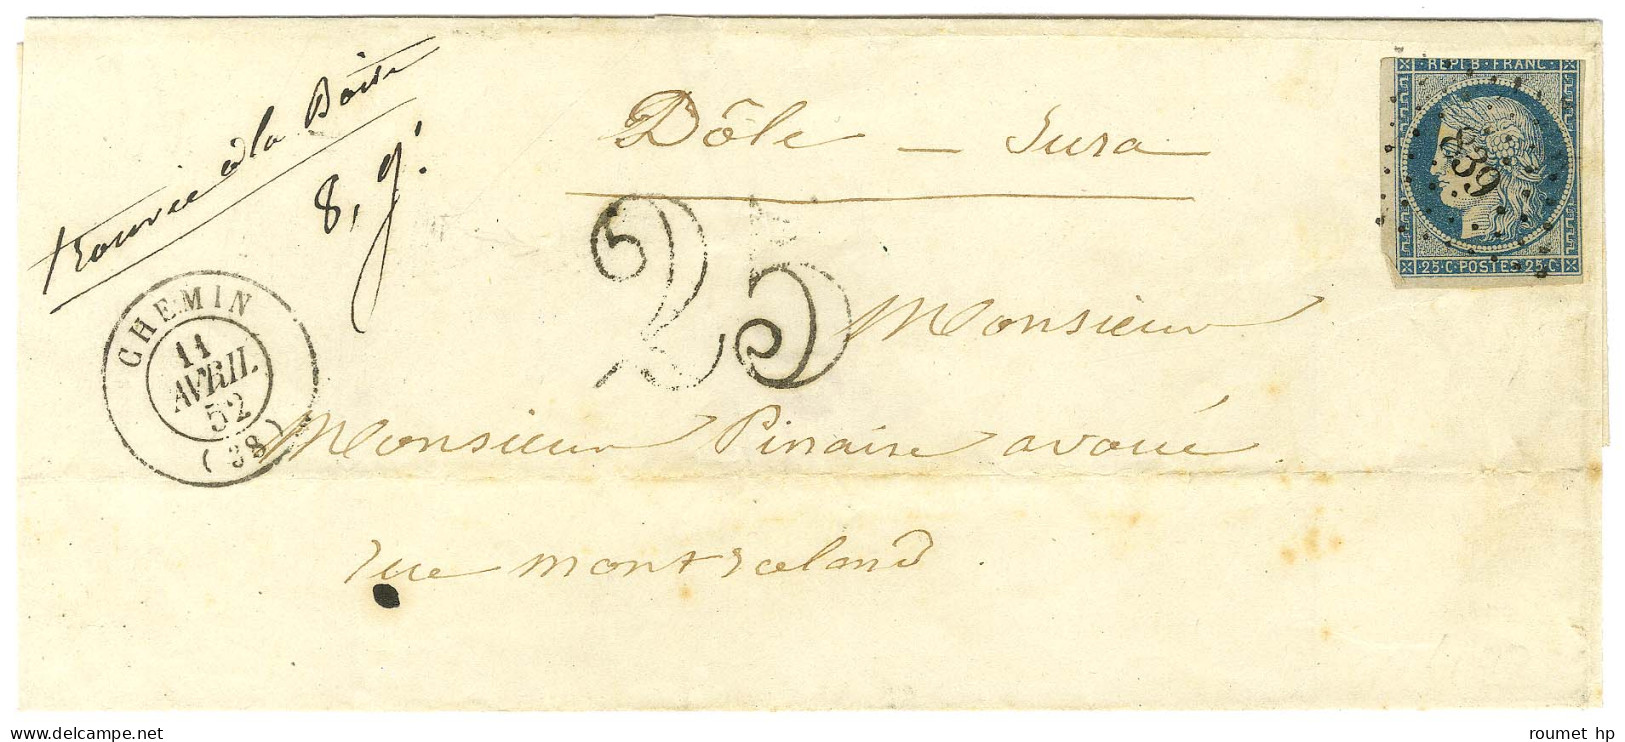 trouvée à la Boite
8, g.
Dôle - Jura
REPUB · FRANC ·
839
25 · C · POSTES · 25 · C
25
CHEMIN
11
AVRIL
52
(38)
Monsieur
Monsieur Pinaire avoué
rue montroland
delcampe.net
roumet hp